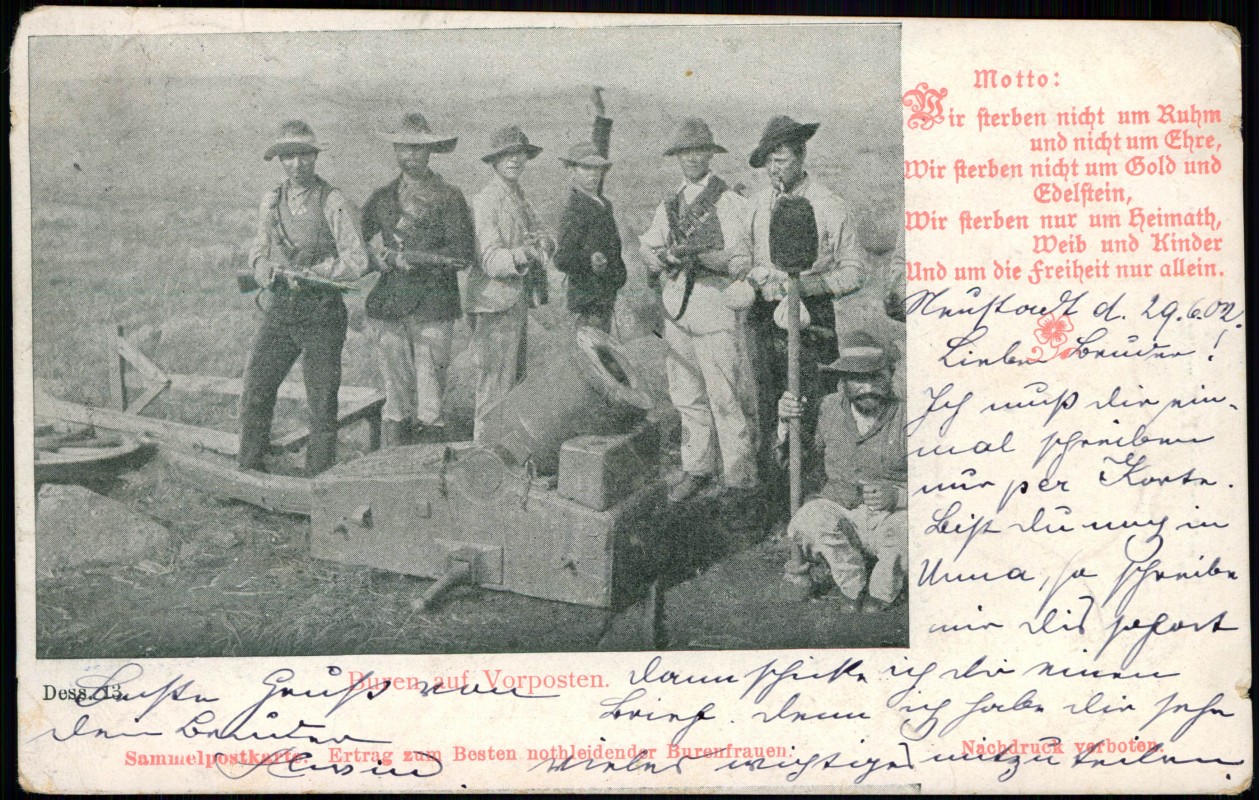 Motto:
Wir sterben nicht um Ruhm
und nicht um Ehre,
Wir sterben nicht um Gold und
Edelstein,
Wir sterben nur um Heimath,
Weib und Kinder
Und um die Freiheit nur allein.
Neustadt d. 29.6.02.
Lieber Bruder!
Ich muß dir ein-
mal schreiben
nur per Karte.
Bist du noch in
Unna, so schreibe
mir dis sofort
dann schicke ich dir einen
Brief. denn ich habe dir sehr
vieles wichtiges mitzuteilen.
Beste Gruß von
dein Bruder
Buren auf Vorposten.
Dess. 13.
Sammelpostkarte. Ertrag zum Besten nothleidender Burenfrauen.
Nachdruck verboten.